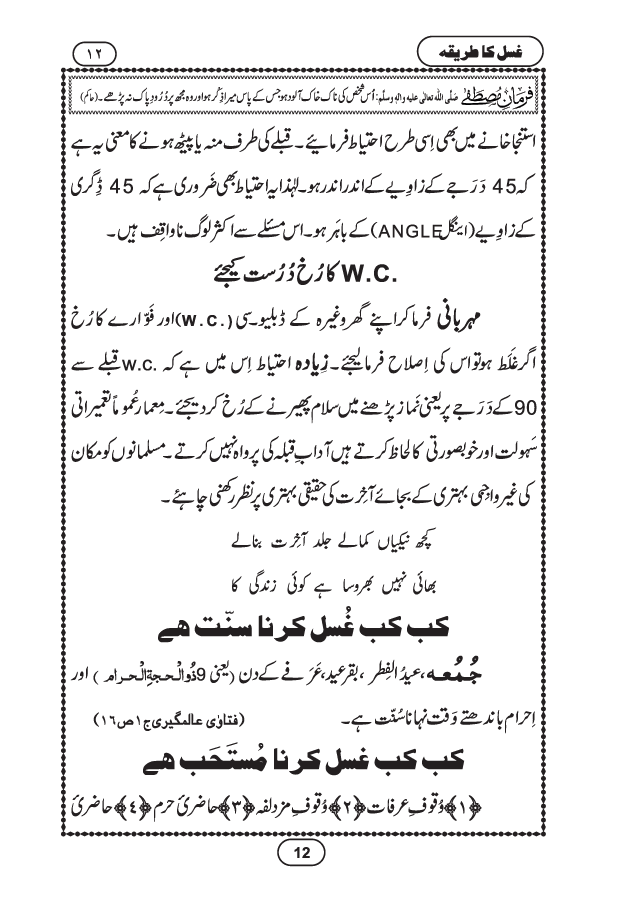 غسل کا طریقہ ۱۲
فرمانِ مصطفٰے صلی اللہ تعالیٰ علیہ واٰلہٖ وسلّم: اُس شخص کی ناک خاک آلود ہو جس کے پاس میرا ذکر ہو اور وہ مجھ پر دُرُودِ پاک نہ پڑھے۔ (حاکم)
استنجا خانے میں بھی اِسی طرح احتیاط فرمائیے۔ قبلے کی طرف منہ یا پیٹھ ہونے کا معنٰی یہ ہے
کہ 45 دَرَجے کے زاویے کے اندر اندر ہو۔ لہٰذا یہ احتیاط بھی ضَروری ہے کہ 45 ڈِگری
کے زاویے (اینگل ANGLE) کے باہَر ہو۔ اس مسئلے سے اکثر لوگ ناواقِف ہیں۔
W.C. کا رُخ دُرُست کیجئے
مہربانی فرما کر اپنے گھر وغیرہ کے ڈبلیو۔سی (w.c.) اور فَوّارے کا رُخ
اگر غَلَط ہو تو اس کی اِصلاح فرما لیجئے۔ زِیادہ احتیاط اِس میں ہے کہ w.c. قبلے سے
90 کے دَرَجے پر یعنی نَماز پڑھنے میں سلام پھیرنے کے رُخ کر دیجئے۔ مِعمار عُموماً تعمیراتی
سَہولت اور خوبصورتی کا لحاظ کرتے ہیں آدابِ قبلہ کی پرواہ نہیں کرتے۔ مسلمانوں کو مکان
کی غیر واجبی بہتری کے بجائے آخِرت کی حقیقی بہتری پر نظر رکھنی چاہئے۔
کچھ نیکیاں کمالے جلد آخِرت بنالے
بھائی نہیں بھروسا ہے کوئی زندگی کا
کب کب غُسل کرنا سنّت ہے
جُمُعہ، عیدُ الفِطر، بقر عید، عَرَفے کے دن (یعنی 9 ذُوالْحجۃِ الْحرام) اور
اِحرام باندھتے وَقت نہانا سُنّت ہے۔ (فتاوٰی عالمگیری ج۱ ص۱۶)
کب کب غسل کرنا مُستَحَب ہے
﴿۱﴾ وُقوفِ عرفات ﴿۲﴾ وُقوفِ مزدلفہ ﴿۳﴾ حاضریٔ حرم ﴿۴﴾ حاضریٔ
12